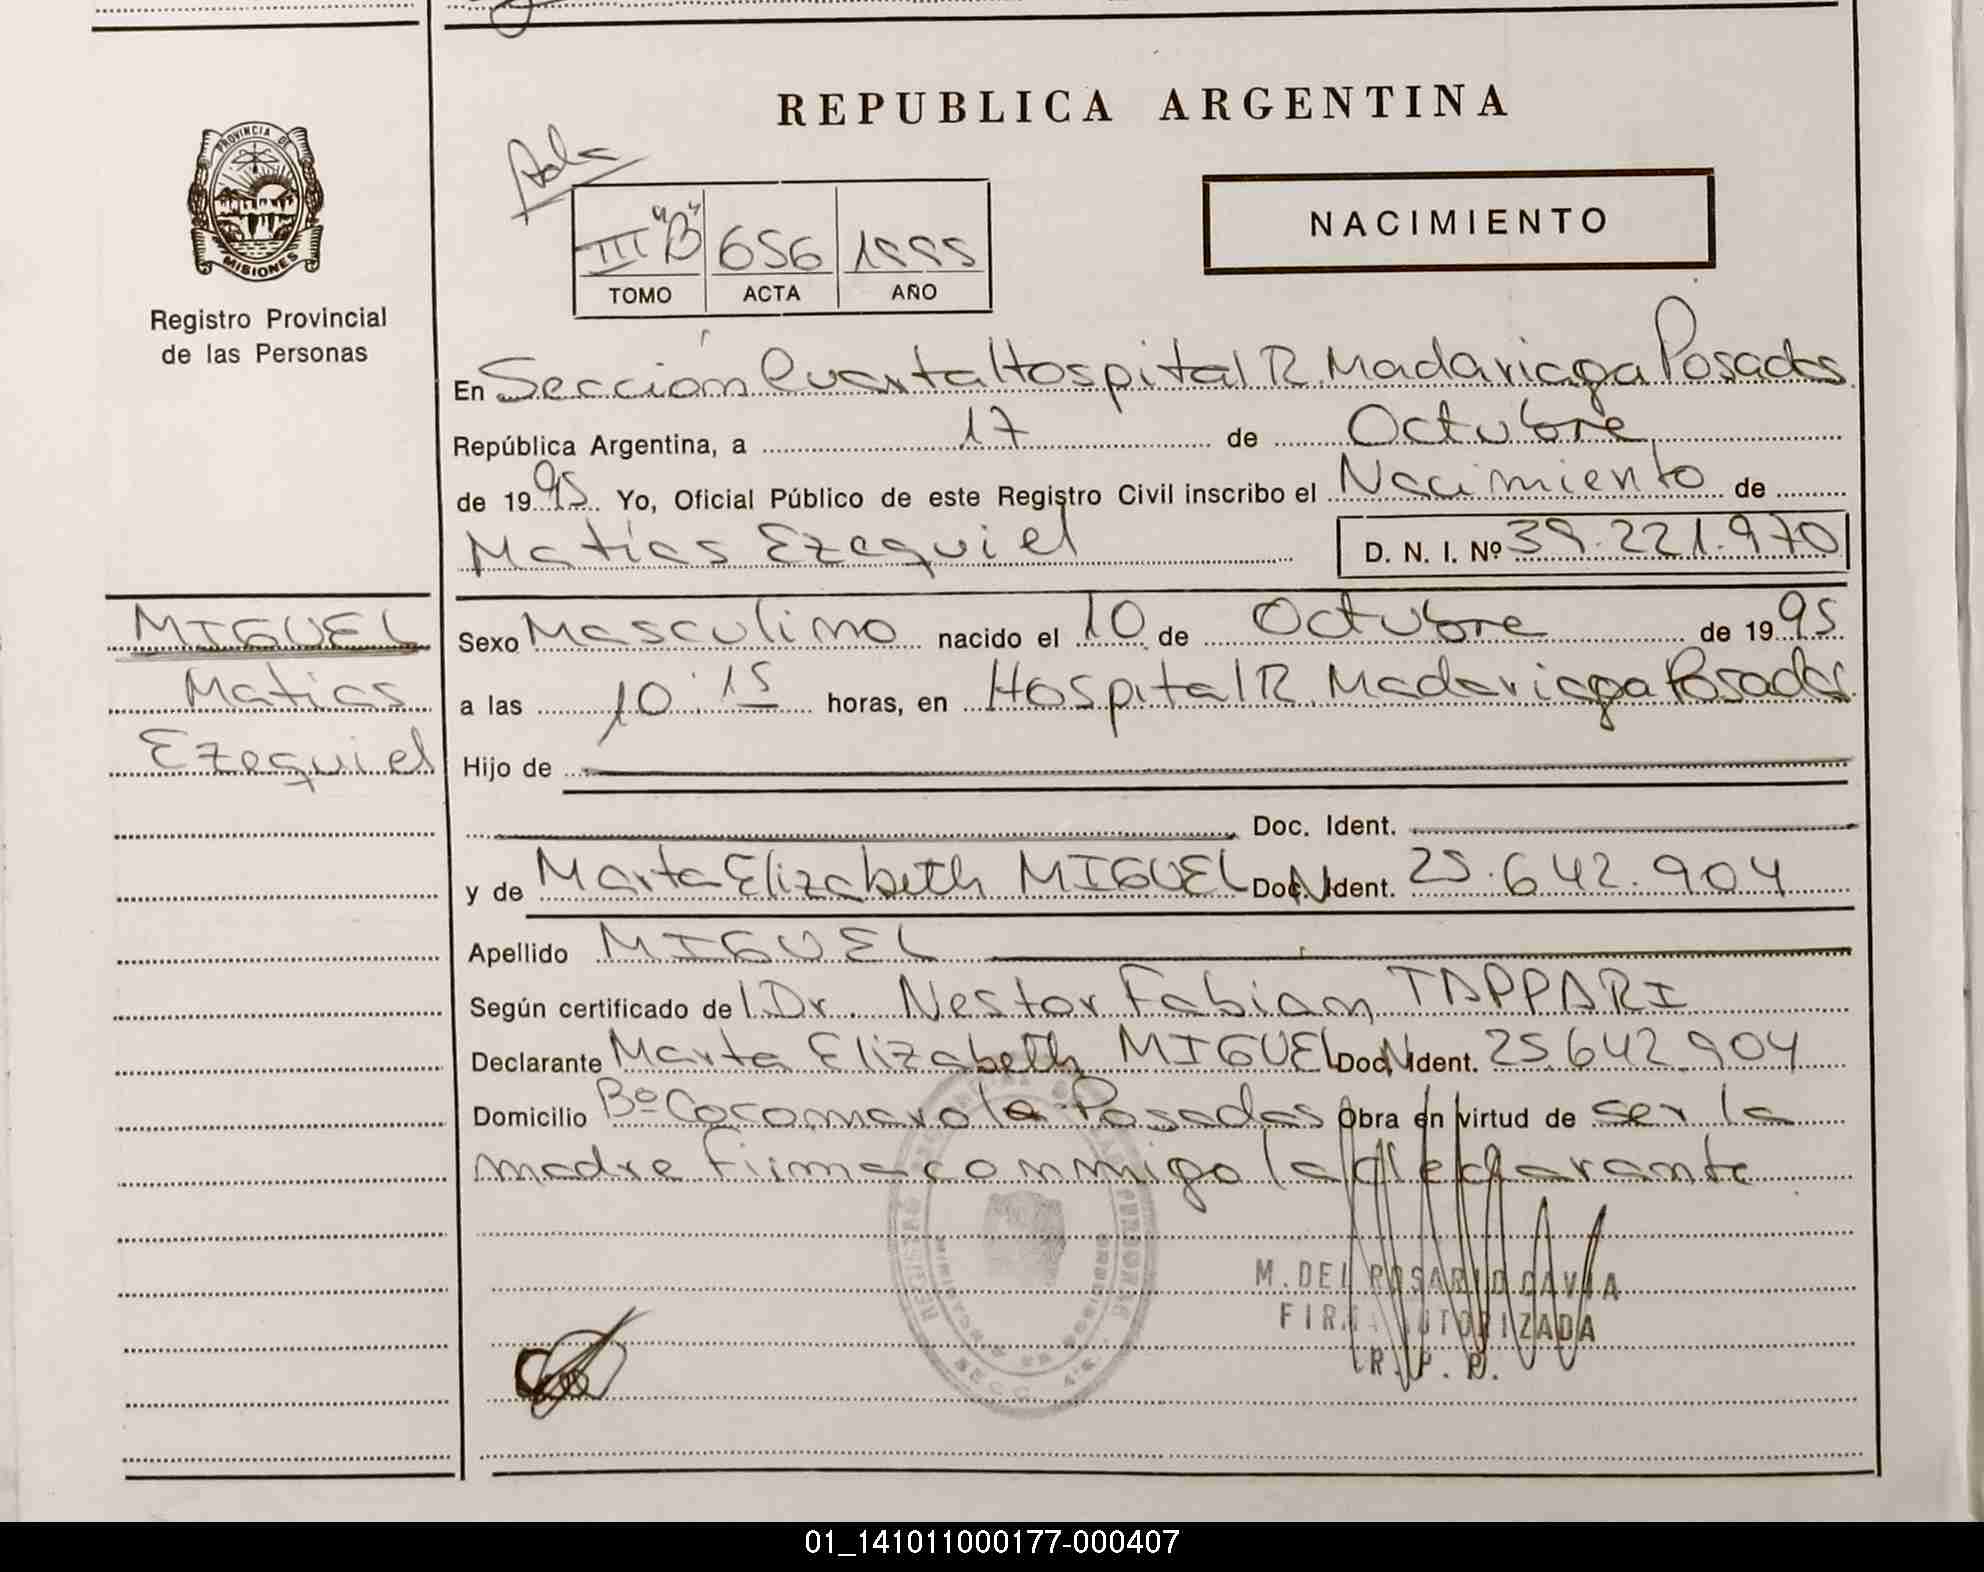 REPUBLICA ARGENTINA
PROVINCIA DE
MISIONES
Registro Provincial
de las Personas
III "B" 656 1995
TOMO ACTA AÑO
NACIMIENTO
En Sección Cuarta Hospital R. Madariaga Posadas
República Argentina, a 17 de Octubre
de 1995 Yo, Oficial Público de este Registro Civil inscribo el Nacimiento de
Matias Ezequiel D. N. I. Nº 39.221.970
MIGUEL
Matias
Ezequiel
Sexo Masculino nacido el 10 de Octubre de 1995
a las 10:15 horas, en Hospital R. Madariaga Posadas
Hijo de
Doc. Ident.
y de Marta Elizabeth MIGUEL Doc. N Ident. 25.642.904
Apellido MIGUEL
Según certificado del Dr. Nestor Fabian TAPPARI
Declarante Marta Elizabeth MIGUEL Doc. N Ident. 25.642.904
Domicilio Bº Cocomarola Posadas Obra en virtud de ser la
madre firma conmigo la declarante
M. DEL ROSARIO GAVIA
FIRMA AUTORIZADA
R. P. P.
SECC. 4ta.
01_141011000177-000407